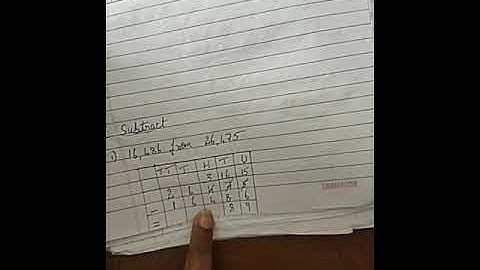 Subtract
1) 16,486 from 26,475
TT T H T U
3 16 15
2 6 4 7 5
- 1 6 4 8 6
= 8 9